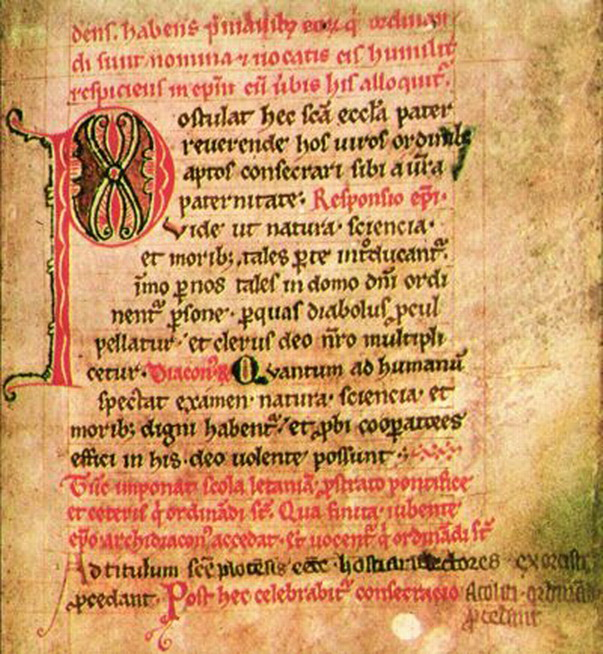 dens. habens p̃ manib; eoꝝ q̇ ordinan
di sunt nomina ⁊ uocatis eis humilit̃
respiciens in ep̃m cũ ũbis his alloquit᷑.
Postulat hec sc̃a eccl̃a pater
reuerende hos uiros ordinib;
aptos consecrari sibi a ũr̃a
paternitate. Responsio ep̃i.
Vide ut natura. sciencia.
et morib; tales ꝑ te int̃oducant᷑.
ĩmo ꝑ nos tales in domo dñi ordi
nent᷑ ꝑsone. ꝑ quas diabolus ꝓcul
pellatur. et clerus deo nr̃o multipli
cetur. Diacon᷒ Quantum ad humanũ
spectat examen. natura. sciencia. et
morib; digni habent᷑. et ꝓbi cooꝑatores
effici in his. deo uolente possunt.
Tũc imponat scola letaniã. ꝓstrato pontifice
et ceteris q̇ ordinãdi st̃. Qua finita. iubente
ep̃o archidiacon᷒ accedat. et uocent᷑ q̇ ordinãdi st̃
Ad titulum sc̃e hostiarii lectores exorcist
ꝓcedant. Post hec celebrabit᷑ consecracio Acoliti ordinãdi
ꝓcedant